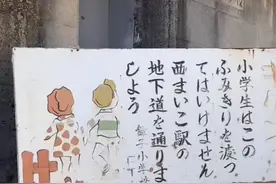 小学生はこの
ふみきりを渡っ
てはいけません
西まいこ駅の
地下道を通りま
しよう